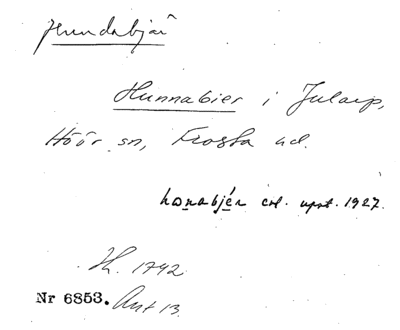 Hundabjär
Hunnabier i Jularp,
Höör sn, Frosta hd.
hɷnabjér enl. uppt. 1927.
Jh. 1792
Nr 6853. Ant 13.